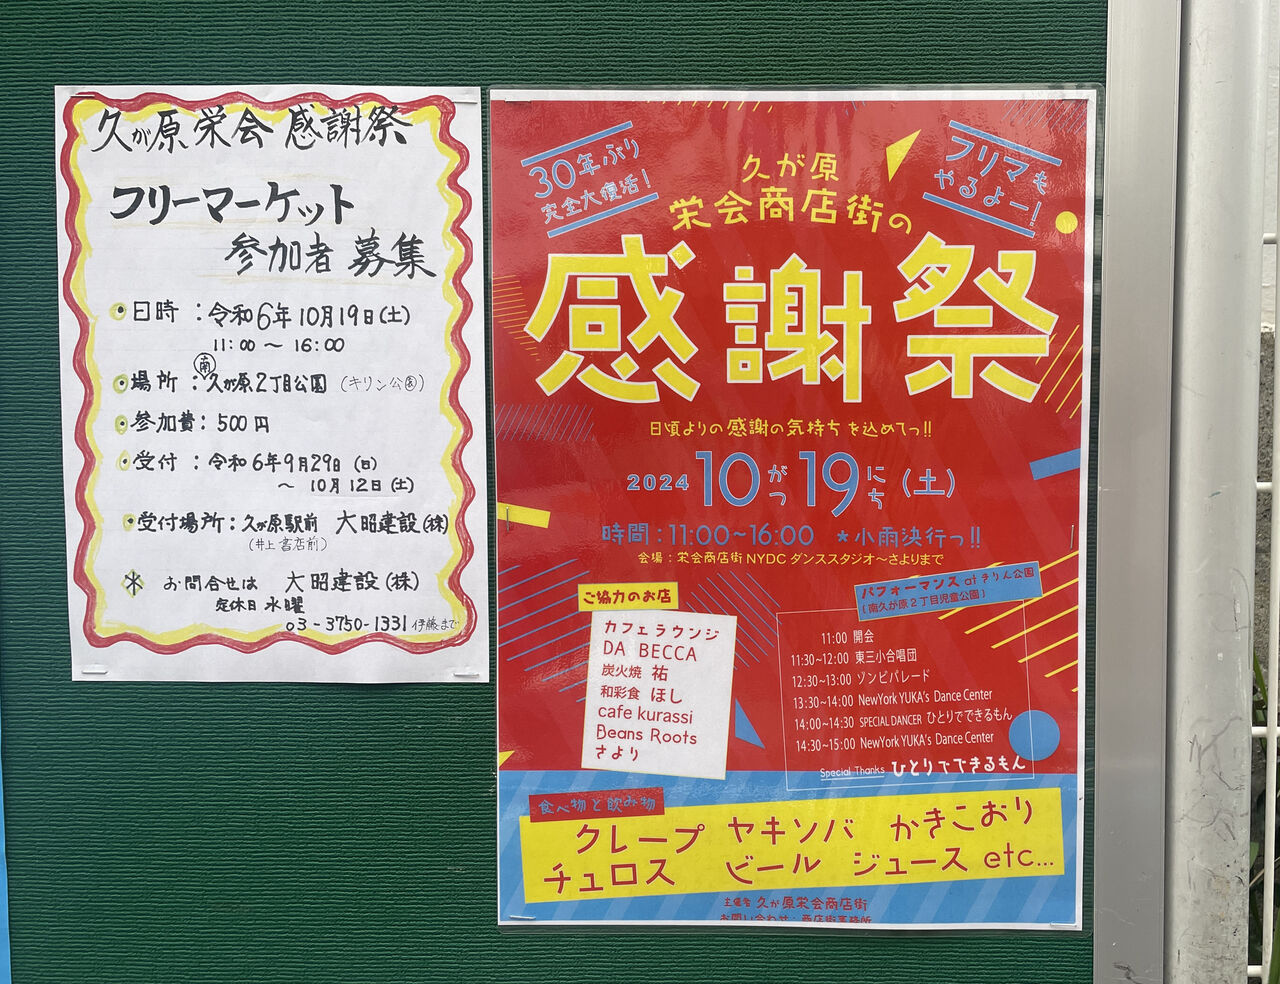 久が原 栄会 感謝祭
フリーマーケット
参加者 募集
日時：令和6年10月19日(土)
11:00 ～ 16:00
場所：南久が原2丁目公園 (キリン公園)
参加費：500円
受付：令和6年9月29日(日)
～ 10月12日(土)
受付場所：久が原駅前 大昭建設(株)
(井上書店前)
＊ お問合せは 大昭建設(株)
定休日 水曜
03-3750-1331 伊藤まで
30年ぶり
完全大復活！
フリマも
やるよー！
久が原
栄会商店街の
感謝祭
日頃よりの感謝の気持ちを込めてっ!!
2024 10がつ19にち(土)
時間：11:00~16:00 ★小雨決行っ!!
会場：栄会商店街 NYDC ダンススタジオ～さよりまで
ご協力のお店
カフェラウンジ
DA BECCA
炭火焼 祐
和彩食 ほし
cafe kurassi
Beans Roots
さより
パフォーマンス at きりん公園
(南久が原2丁目児童公園)
11:00 開会
11:30~12:00 東三小合唱団
12:30~13:00 ゾンビパレード
13:30~14:00 NewYork YUKA's Dance Center
14:00~14:30 SPECIAL DANCER ひとりでできるもん
14:30~15:00 NewYork YUKA's Dance Center
Special Thanks ひとりでできるもん
食べ物と飲み物
クレープ ヤキソバ かきこおり
チュロス ビール ジュース etc...
主催者 久が原栄会商店街
お問い合わせ：商店街事務所